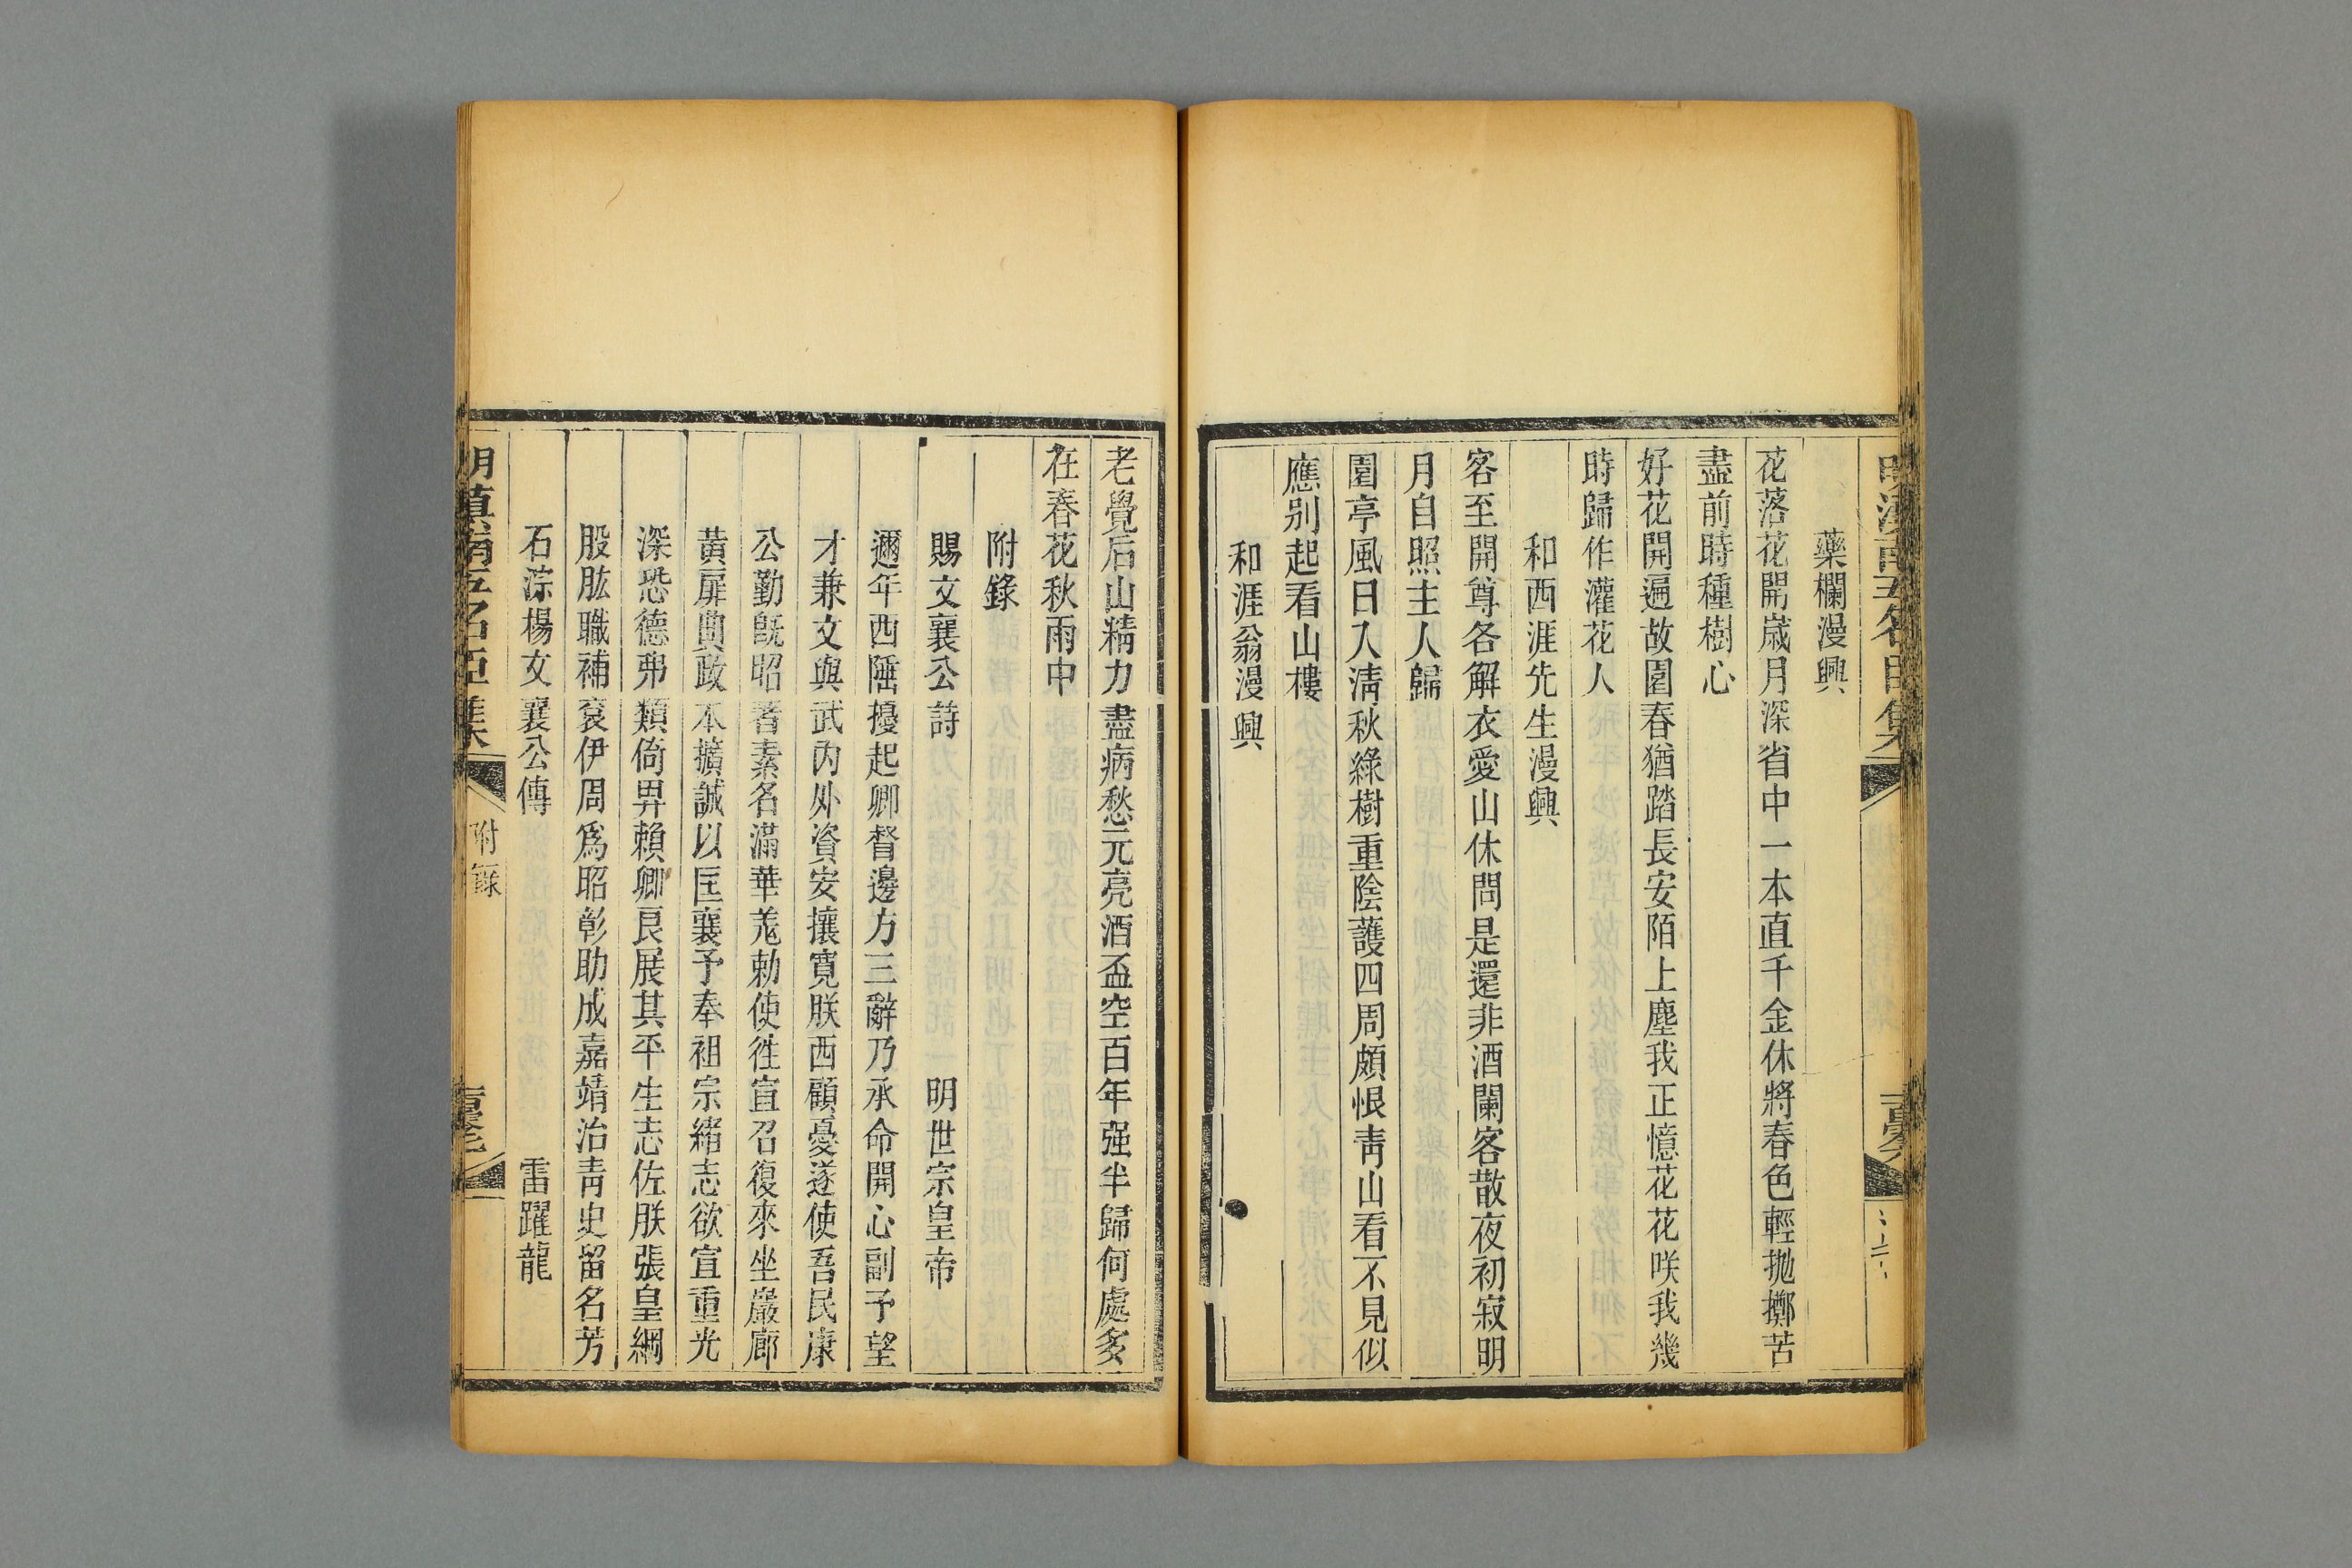 藥欄漫興
花落花開歲月深省中一本直千金休將春色輕抛擲苦
盡前時種樹心
好花開遍故園春猶踏長安陌上塵我正憶花花咲我幾
時歸作灌花人
和西涯先生漫興
客至開尊各解衣愛山休問是還非酒闌客散夜初寂明
月自照主人歸
園亭風日入淸秋綠樹重陰護四周頗恨靑山看不見似
應别起看山樓
和涯翁漫興
老覺后山精力盡病愁元亮酒盃空百年强半歸何處多
在春花秋雨中
附錄
賜文襄公詩 明世宗皇帝
邇年西陲擾起卿督邊方三辭乃承命開心副予望
才兼文與武内外資安攘寛朕西顧憂遂使吾民康
公勤既昭著素名滿華羗勅使徃宣召復來坐巖廊
黃扉典政本擴誠以匡襄予奉祖宗緒志欲宣重光
深恐德弗類倚畀賴卿良展其平生志佐朕張皇綱
股肱職補袞伊周爲昭彰助成嘉靖治靑史留名芳
石淙楊文襄公傳 雷躍龍
明滇南五名臣集 附錄